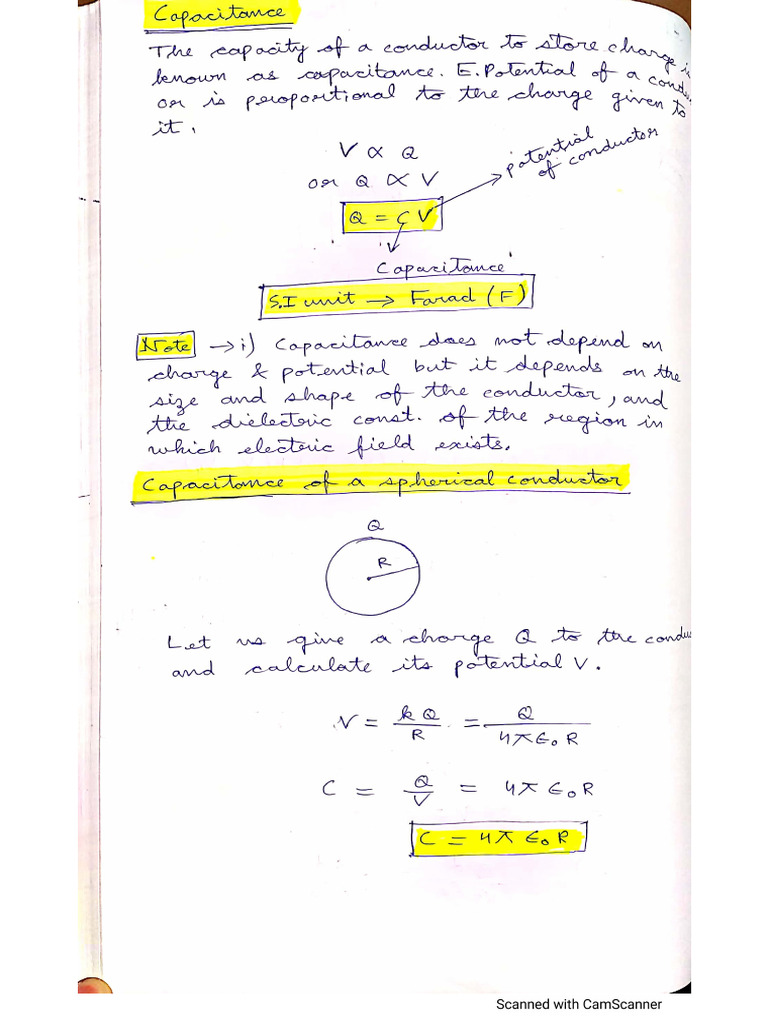 Capacitance
The capacity of a conductor to store charge is
known as capacitance. E. Potential of a conduct
or is proportional to the charge given to
it.
V ∝ Q
or Q ∝ V
potential
of conductor
Q = C V
Capacitance
S.I unit → Farad (F)
Note → i) Capacitance does not depend on
charge & potential but it depends on the
size and shape of the conductor, and
the dielectric const. of the region in
which electric field exists.
Capacitance of a spherical conductor
Q
R
Let us give a charge Q to the conduc
and calculate its potential V.
V = kQ/R = Q/4π∈₀R
C = Q/V = 4π∈₀R
C = 4π∈₀R
Scanned with CamScanner